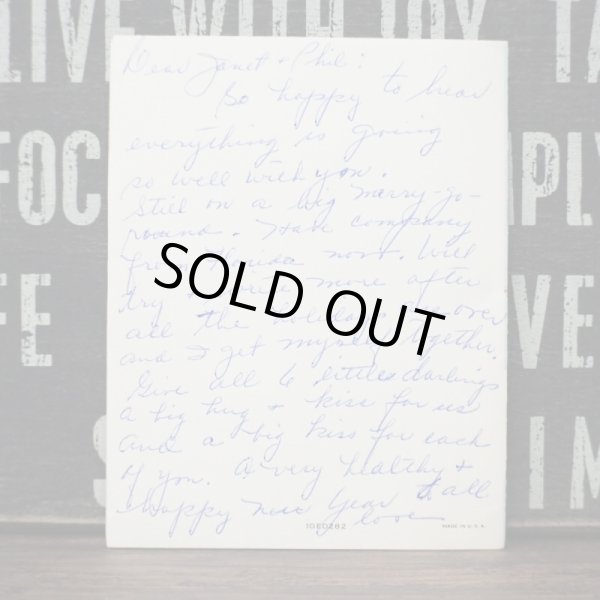 LIVE WITH JOY TA
FOC
MPLY
FE
VE
S
IM
Dear Janet + Phil:
So happy to hear
everything is going
so well with you.
Still on a big merry-go-
round. Have company
from Florida now. Will
try & write more after
all the holidays are over
and I get myself together.
Give all 6 little darlings
a big hug + kiss for us
and a big kiss for each
of you. A very healthy +
happy new year to all
love
SOLD OUT
106D282
MADE IN U.S.A.